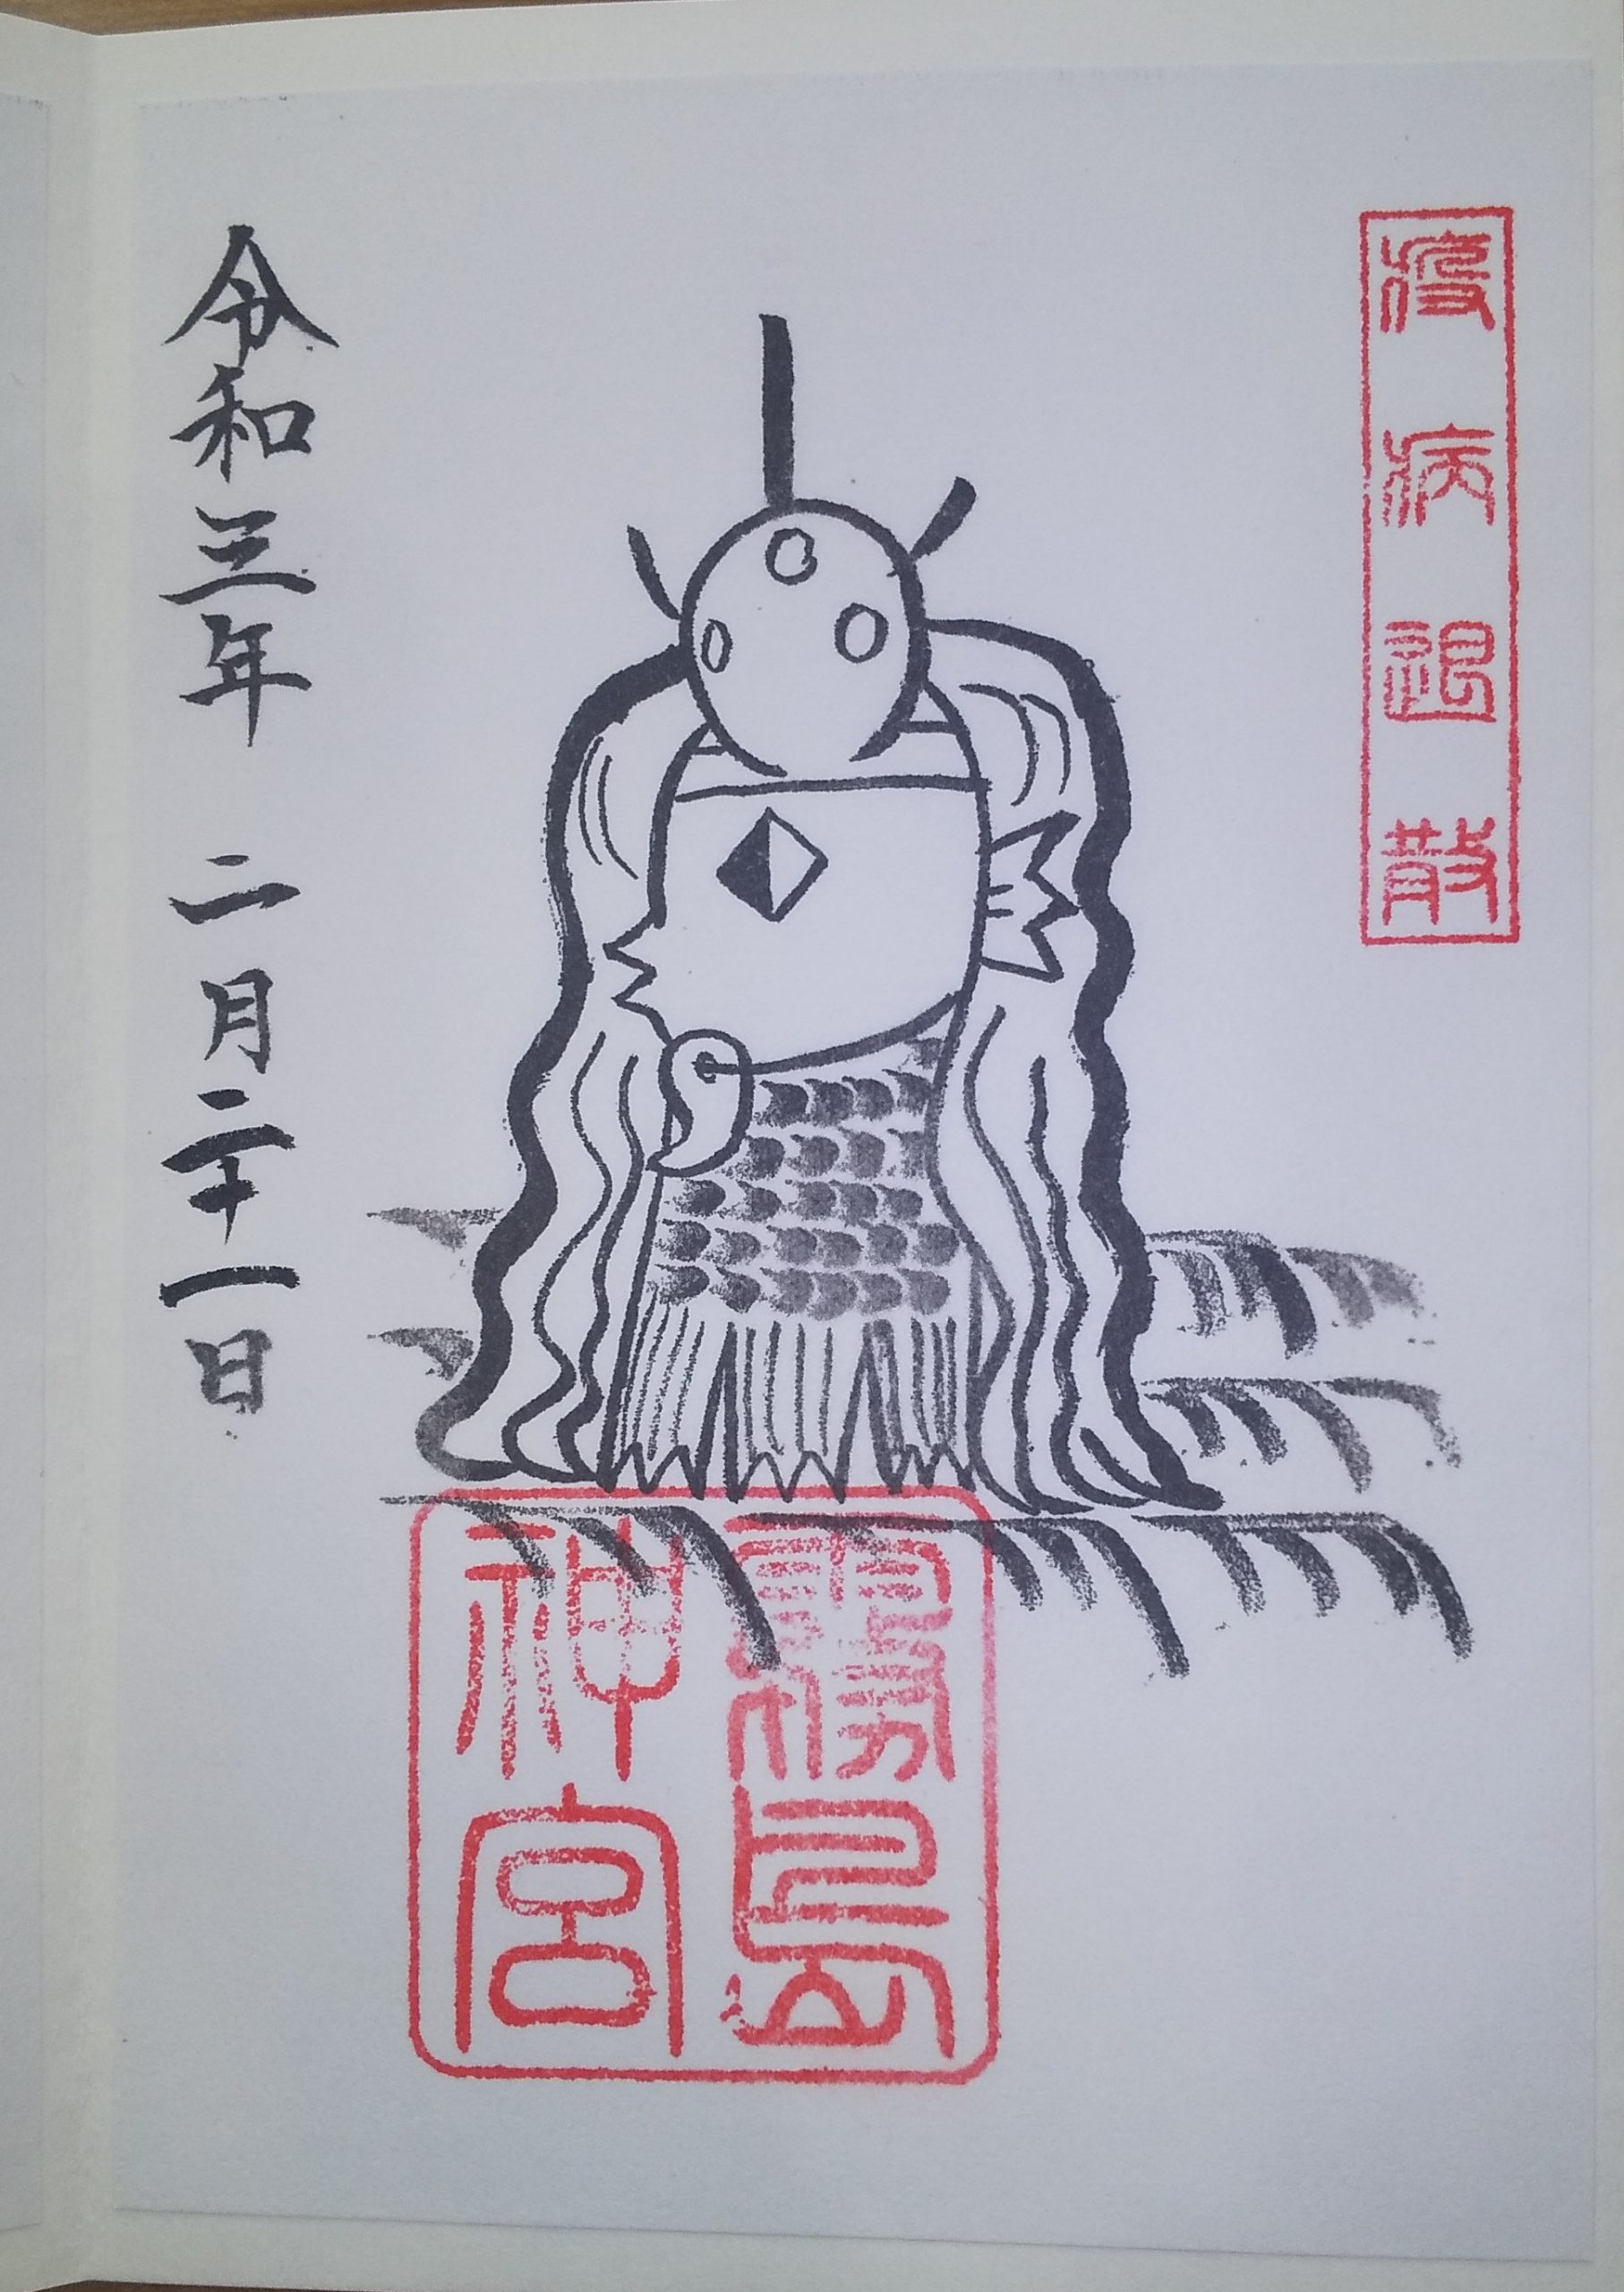 疫病退散
霧島
神宮
令和三年 二月二十一日